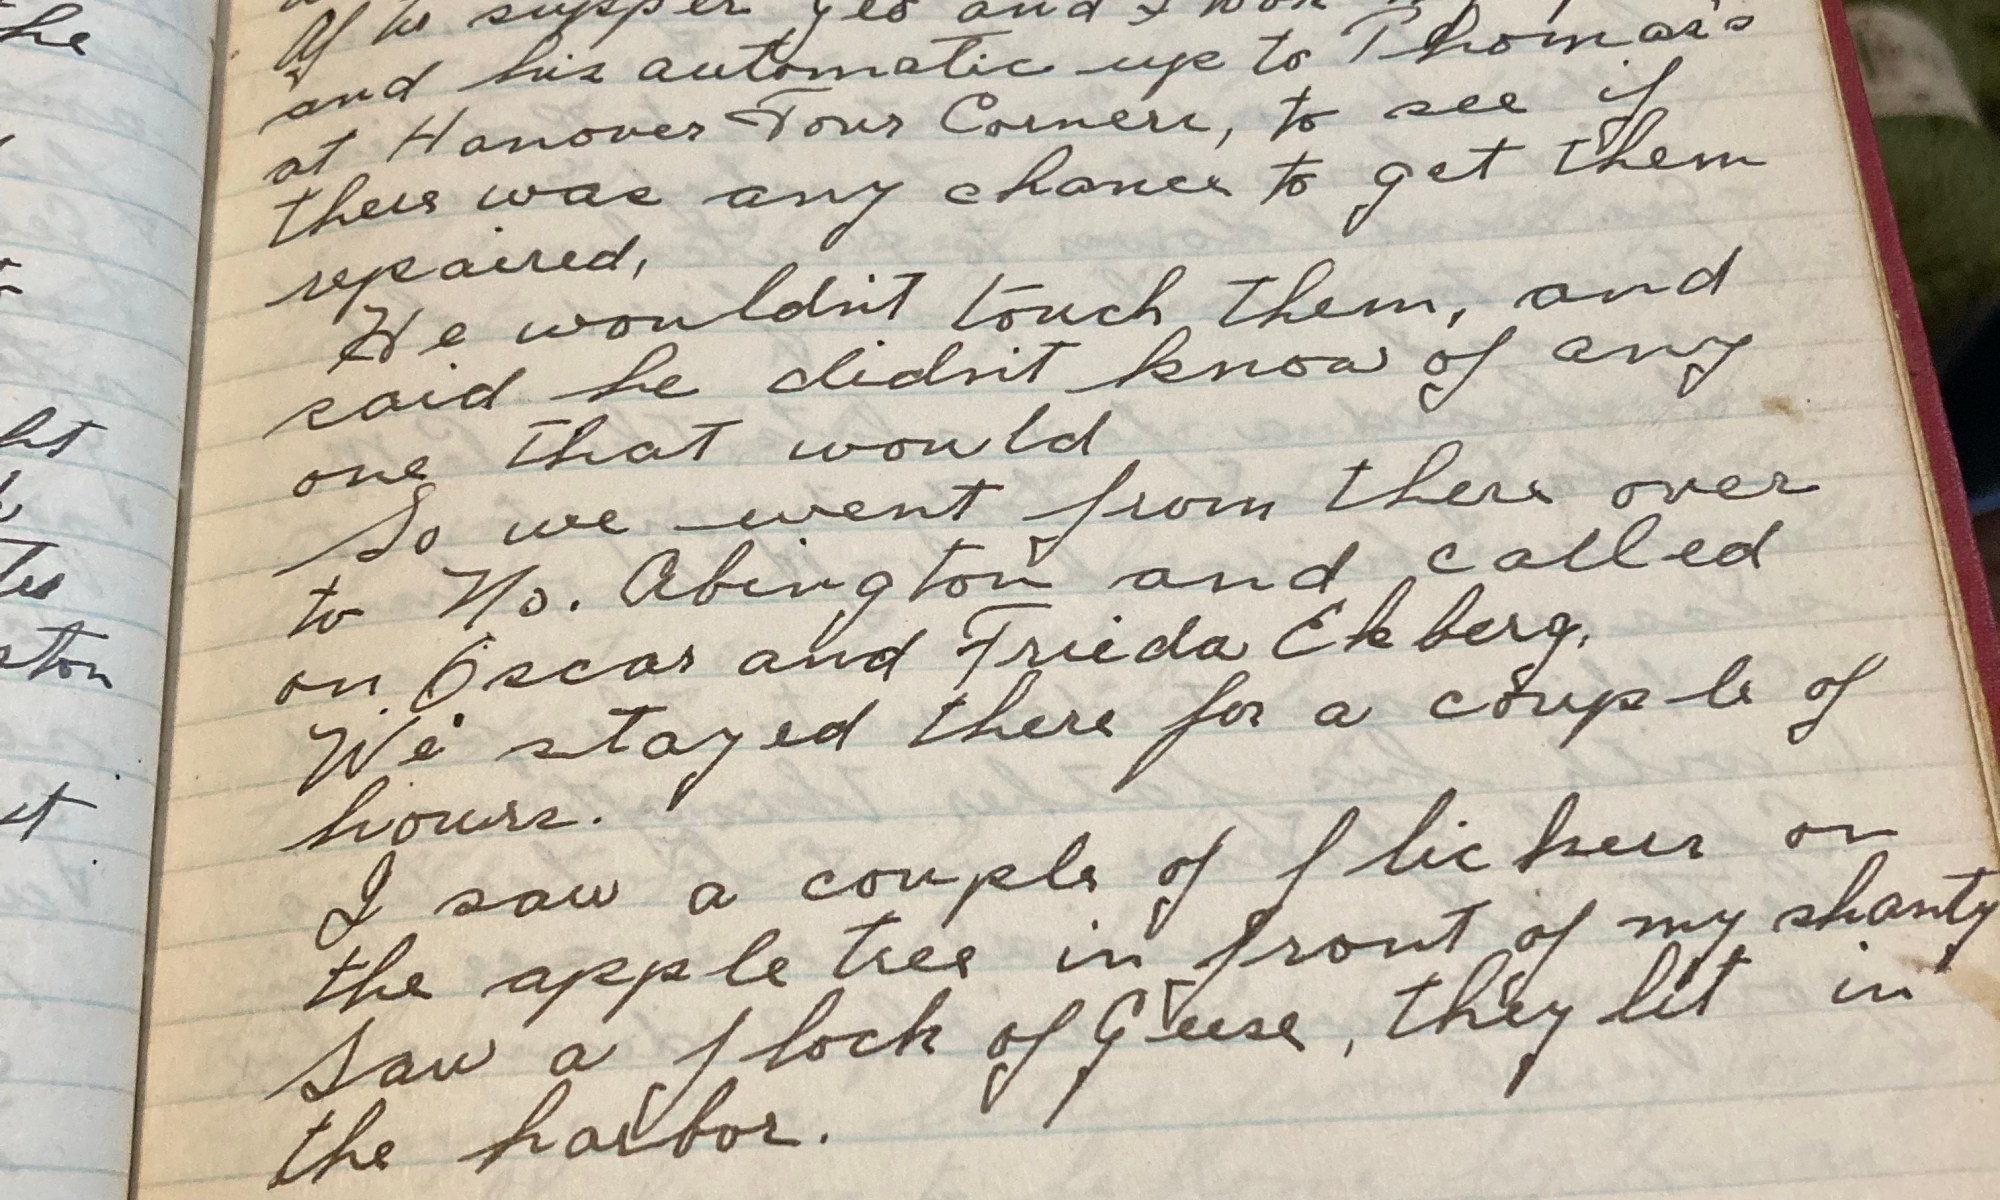 he
ht
ston
st
supper Geo and I took
and his automatic up to Thomas's
at Hanover Four Corners, to see if
there was any chance to get them
repaired,
He wouldn't touch them, and
said he didn't know of any
one that would
So we went from there over
to No. Abington and called
on Oscar and Frieda Ekberg.
We stayed there for a couple of
hours.
I saw a couple of flickers on
the apple tree in front of my shanty
Saw a flock of Geese, they lit in
the harbor.